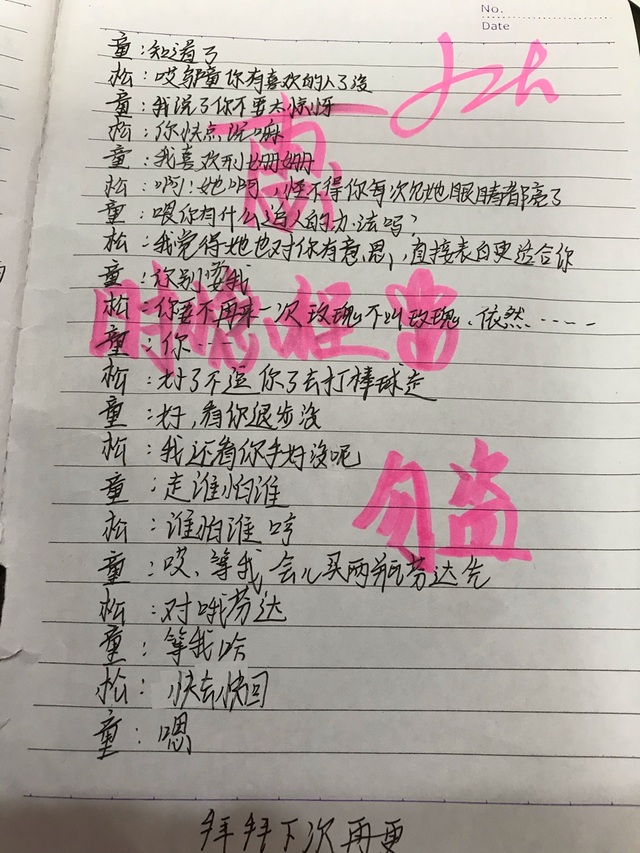 No.
Date
童：知道了
松：哎邬童你有喜欢的人了没
童：我说了你不要太惊讶
松：你快点说嘛
童：我喜欢邢姗姗
松：啊！她啊，怪不得你每次见她眼睛都亮了
童：喂你有什么追人的办法吗？
松：我觉得她也对你有意思，直接表白更适合你
童：你别耍我
松：你要不再来一次玫瑰不叫玫瑰、依然……
童：你……
松：好了不逗你了去打棒球走
童：好，看你退步没
松：我还看你手好没呢
童：走谁怕谁
松：谁怕谁哼
童：哎、等我会儿买两瓶芬达先
松：对哦芬达
童：等我哈
松：快去快回
童：嗯
勿盗
拜拜下次再更